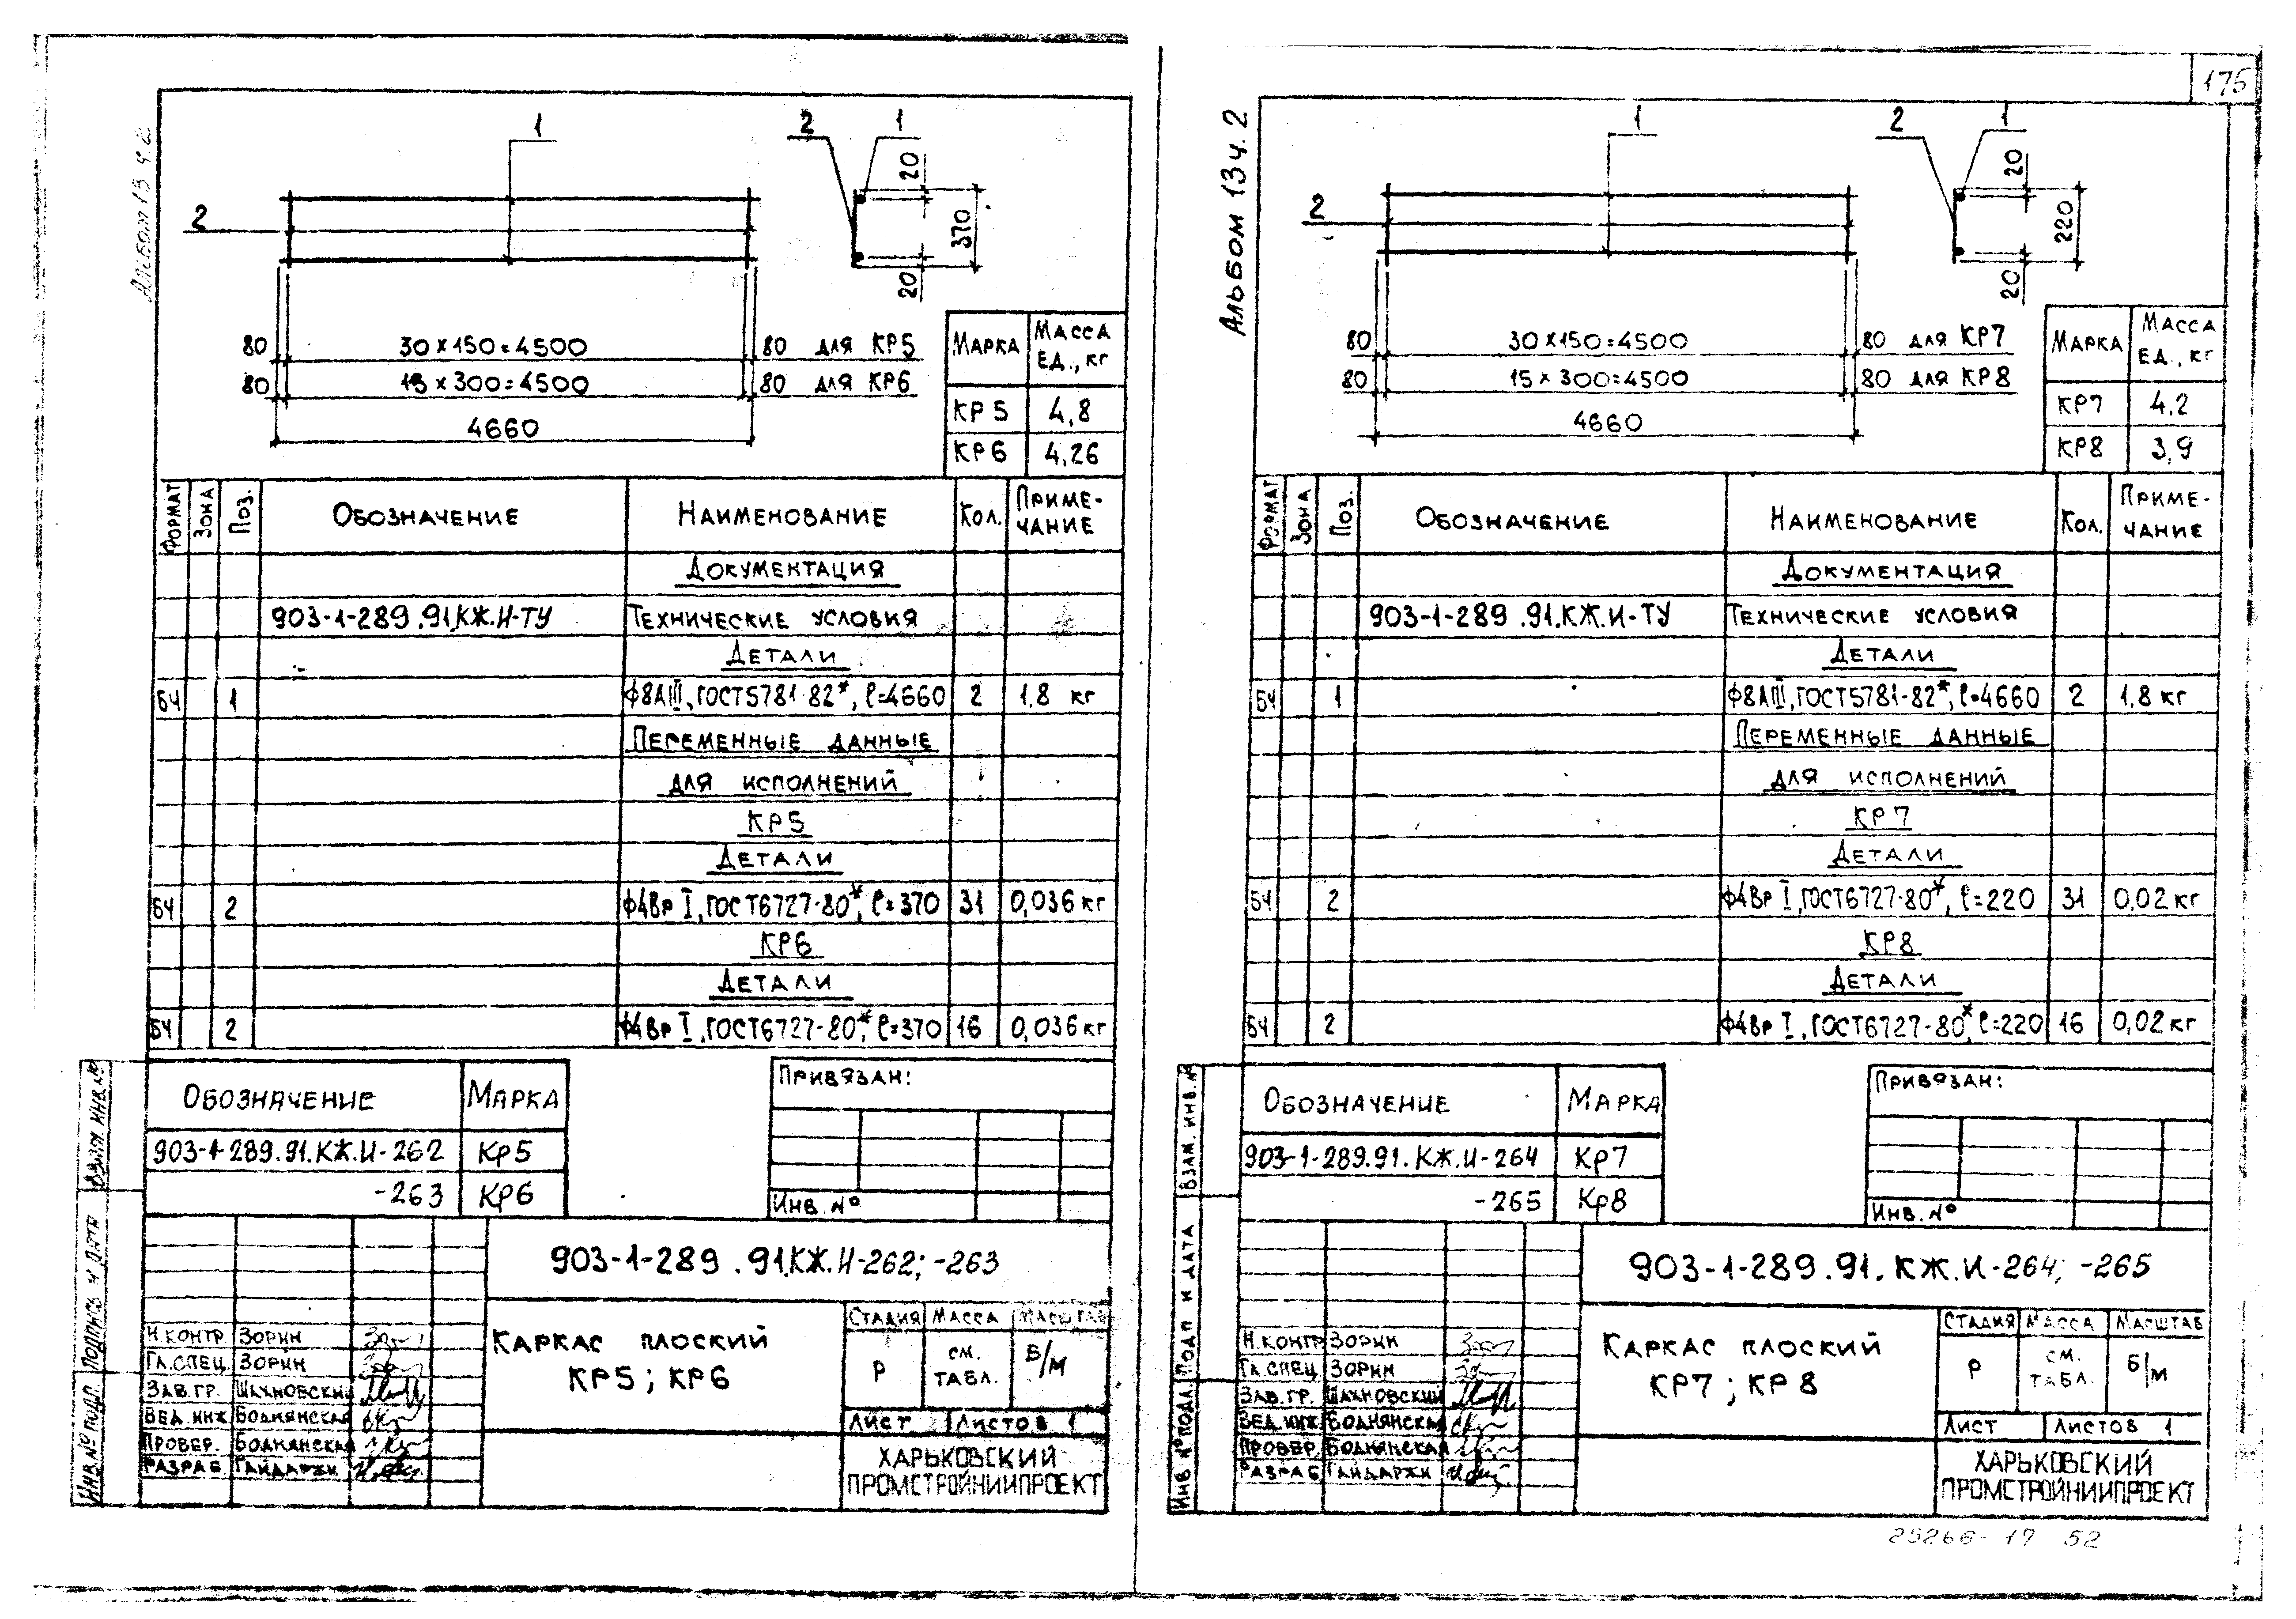 175
Альбом 13 ч. 2
1
2
1
2
20
370
20
80
30×150=4500
80 для КР5
80
15×300=4500
80 для КР6
4660
Марка
Масса ед., кг
КР5
4,8
КР6
4,26
Формат
Зона
Поз.
Обозначение
Наименование
Кол.
Приме-
чание
Документация
903-1-289.91.КЖ.И-ТУ
Технические условия
Детали
БЧ 1 Ф8АIII, ГОСТ5781-82*, ℓ=4660 2 1,8 кг
Переменные данные
для исполнений
КР5
Детали
БЧ 2 Ф4Вр I, ГОСТ6727-80*, ℓ=370 31 0,036 кг
КР6
Детали
БЧ 2 Ф4Вр I, ГОСТ6727-80*, ℓ=370 16 0,036 кг
Обозначение Марка
903-1-289.91.КЖ.И-262 Кр5
-263 Кр6
Привязан:
Инв. №
Взам. инв. №
Подпись и дата
Инв. № подл.
903-1-289.91.КЖ.И-262; -263
Н.контр. Зорин
Гл.спец. Зорин
Зав.гр. Шахновский
Вед.инж. Боднянская
Провер. Боднянская
Разраб. Гайдаржи
Каркас плоский
КР5; КР6
Стадия Масса Масштаб
Р см. табл. Б/М
Лист Листов 1
ХАРЬКОВСКИЙ
ПРОМСТРОЙНИИПРОЕКТ
Альбом 13 ч. 2
1
2
1
2
20
220
20
80
30×150=4500
80 для КР7
80
15×300=4500
80 для КР8
4660
Марка
Масса ед., кг
КР7
4,2
КР8
3,9
Формат
Зона
Поз.
Обозначение
Наименование
Кол.
Приме-
чание
Документация
903-1-289.91.КЖ.И-ТУ
Технические условия
Детали
БЧ 1 Ф8АIII, ГОСТ5781-82*, ℓ=4660 2 1,8 кг
Переменные данные
для исполнений
КР7
Детали
БЧ 2 Ф4Вр I, ГОСТ6727-80*, ℓ=220 31 0,02 кг
КР8
Детали
БЧ 2 Ф4Вр I, ГОСТ6727-80*, ℓ=220 16 0,02 кг
Обозначение Марка
903-1-289.91.КЖ.И-264 Кр7
-265 Кр8
Привязан:
Инв. №
Взам. инв. №
Подп и дата
Инв. № подл.
903-1-289.91.КЖ.И-264; -265
Н.контр Зорин
Гл.спец. Зорин
Зав.гр. Шахновский
Вед.инж Боднянская
Провер. Боднянская
Разраб Гайдаржи
Каркас плоский
КР7; КР8
Стадия Масса Масштаб
Р см. табл. Б/М
Лист Листов 1
ХАРЬКОВСКИЙ
ПРОМСТРОЙНИИПРОЕКТ
25266-17 52